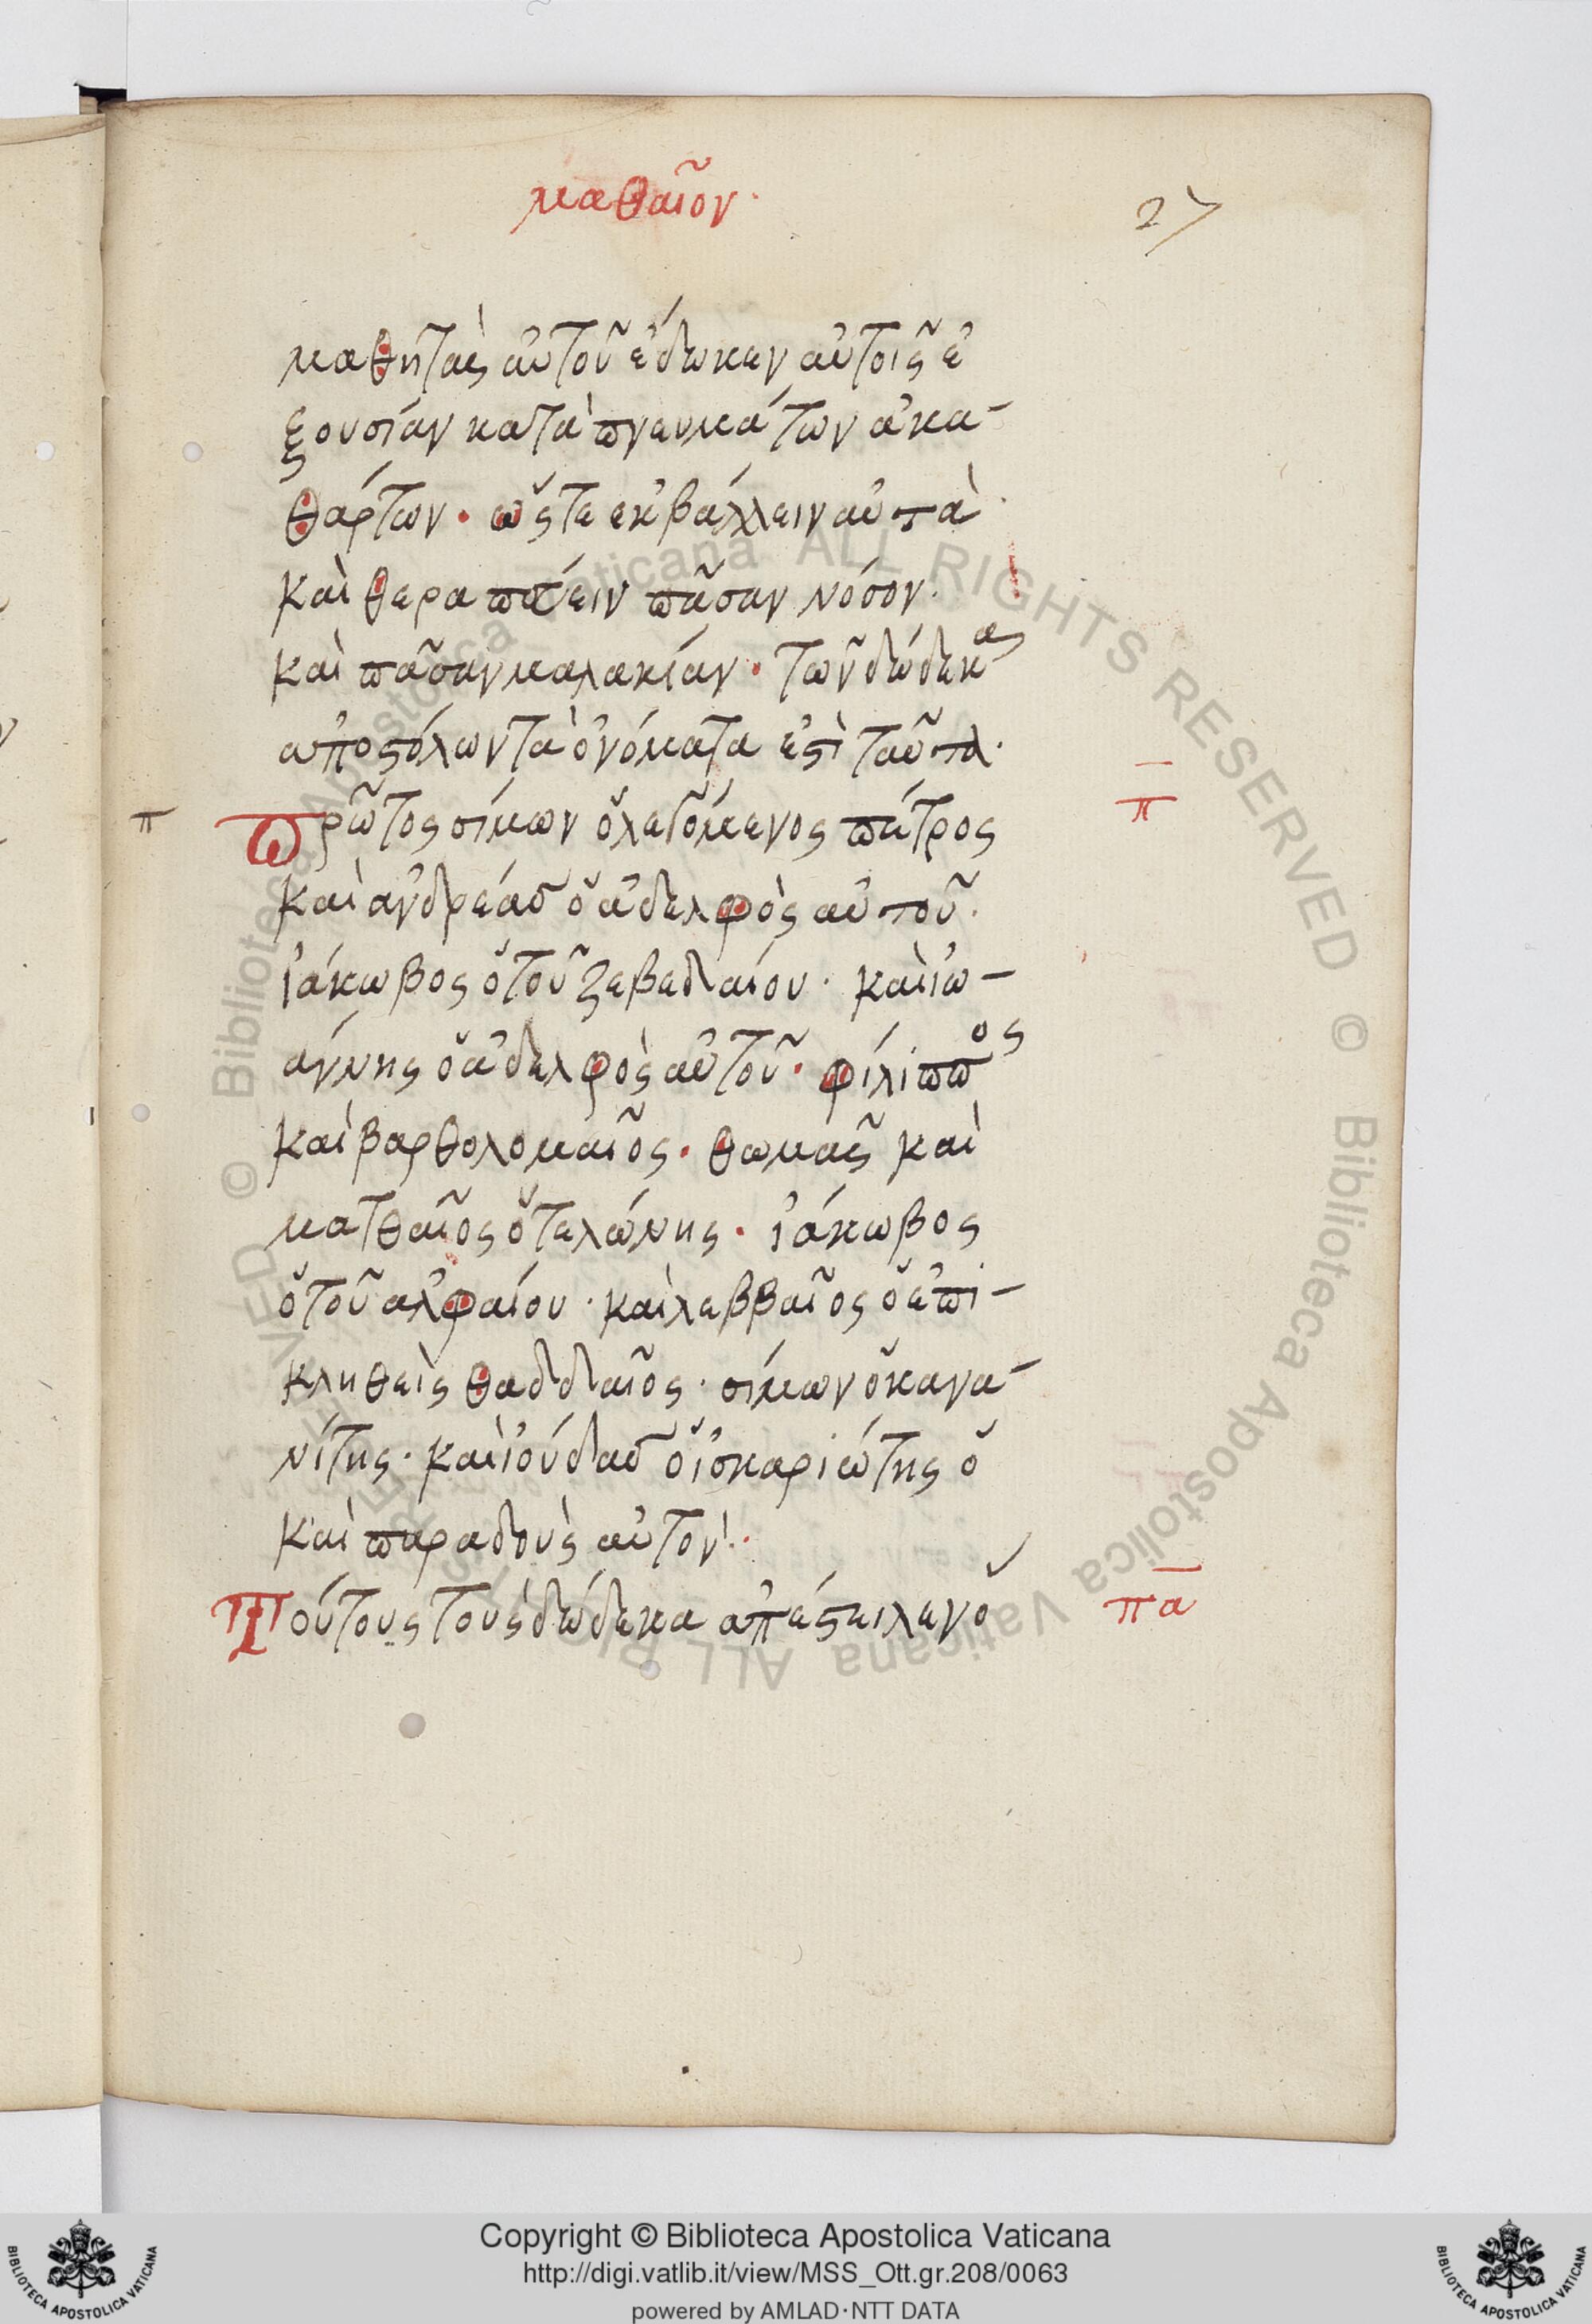 μαθαῖον·
27
μαθητὰς αὐτοῦ ἐδωκεν αὐτοῖς ἐ
ξουσίαν κατὰ πνευμάτων ἀκα-
θάρτων· ὥστε ἐκβάλλειν αὐτὰ·
καὶ θεραπεύειν πᾶσαν νόσον·
καὶ πᾶσαν μαλακίαν· τῶν δώδεκα
ἀποστόλων τὰ ὀνόματα ἐστὶ ταῦτα·
π
πρῶτος σίμων ὁ λεγόμενος πέτρος
π
καὶ ἀνδρέας ὁ ἀδελφὸς αὐτοῦ·
ἰάκωβος ὁ τοῦ ζεβεδαίου· καὶ ἰω-
άννης ὁ ἀδελφὸς αὐτοῦ· φίλιππος
καὶ βαρθολομαῖος· θωμᾶς καὶ
ματθαῖος ὁ τελώνης· ἰάκωβος
ὁ τοῦ ἀλφαίου· καὶ λεββαῖος ὁ ἐπι-
κληθεὶς θαδδαῖος· σίμων ὁ κανα-
νίτης· καὶ ἰούδας ὁ ἰσκαριώτης ὁ
καὶ παραδοὺς αὐτόν·
Τούτους τοὺς δώδεκα ἀπέστειλεν ὁ
πα
Copyright © Biblioteca Apostolica Vaticana
http://digi.vatlib.it/view/MSS_Ott.gr.208/0063
powered by AMLAD·NTT DATA
BIBLIOTECA APOSTOLICA VATICANA
BIBLIOTECA APOSTOLICA VATICANA